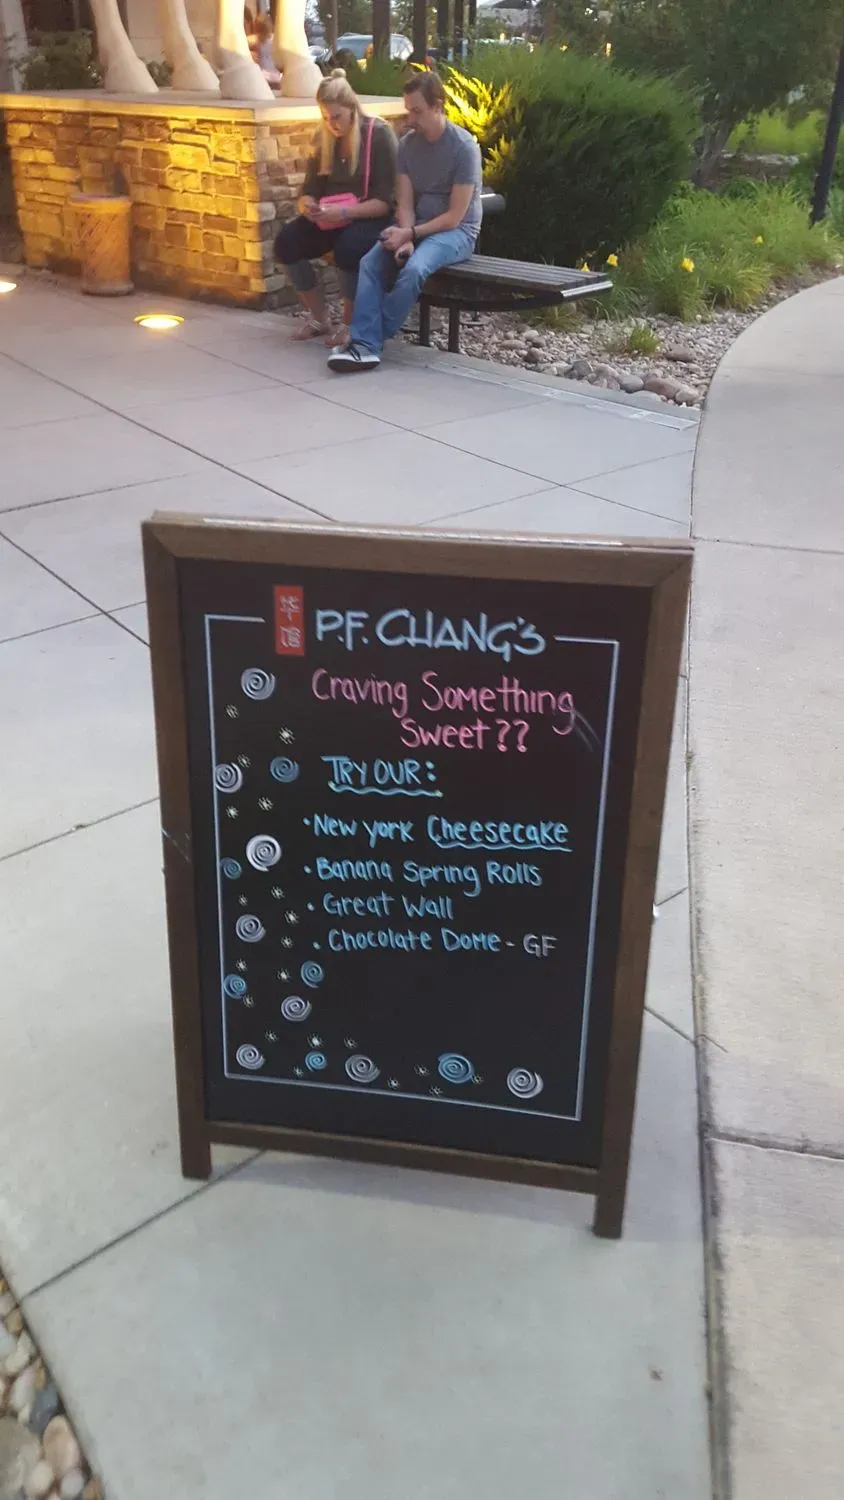 华
馆
P.F. CHANG'S
Craving Something
Sweet??
TRY OUR:
• New york Cheesecake
• Banana Spring Rolls
• Great Wall
• Chocolate Dome - GF